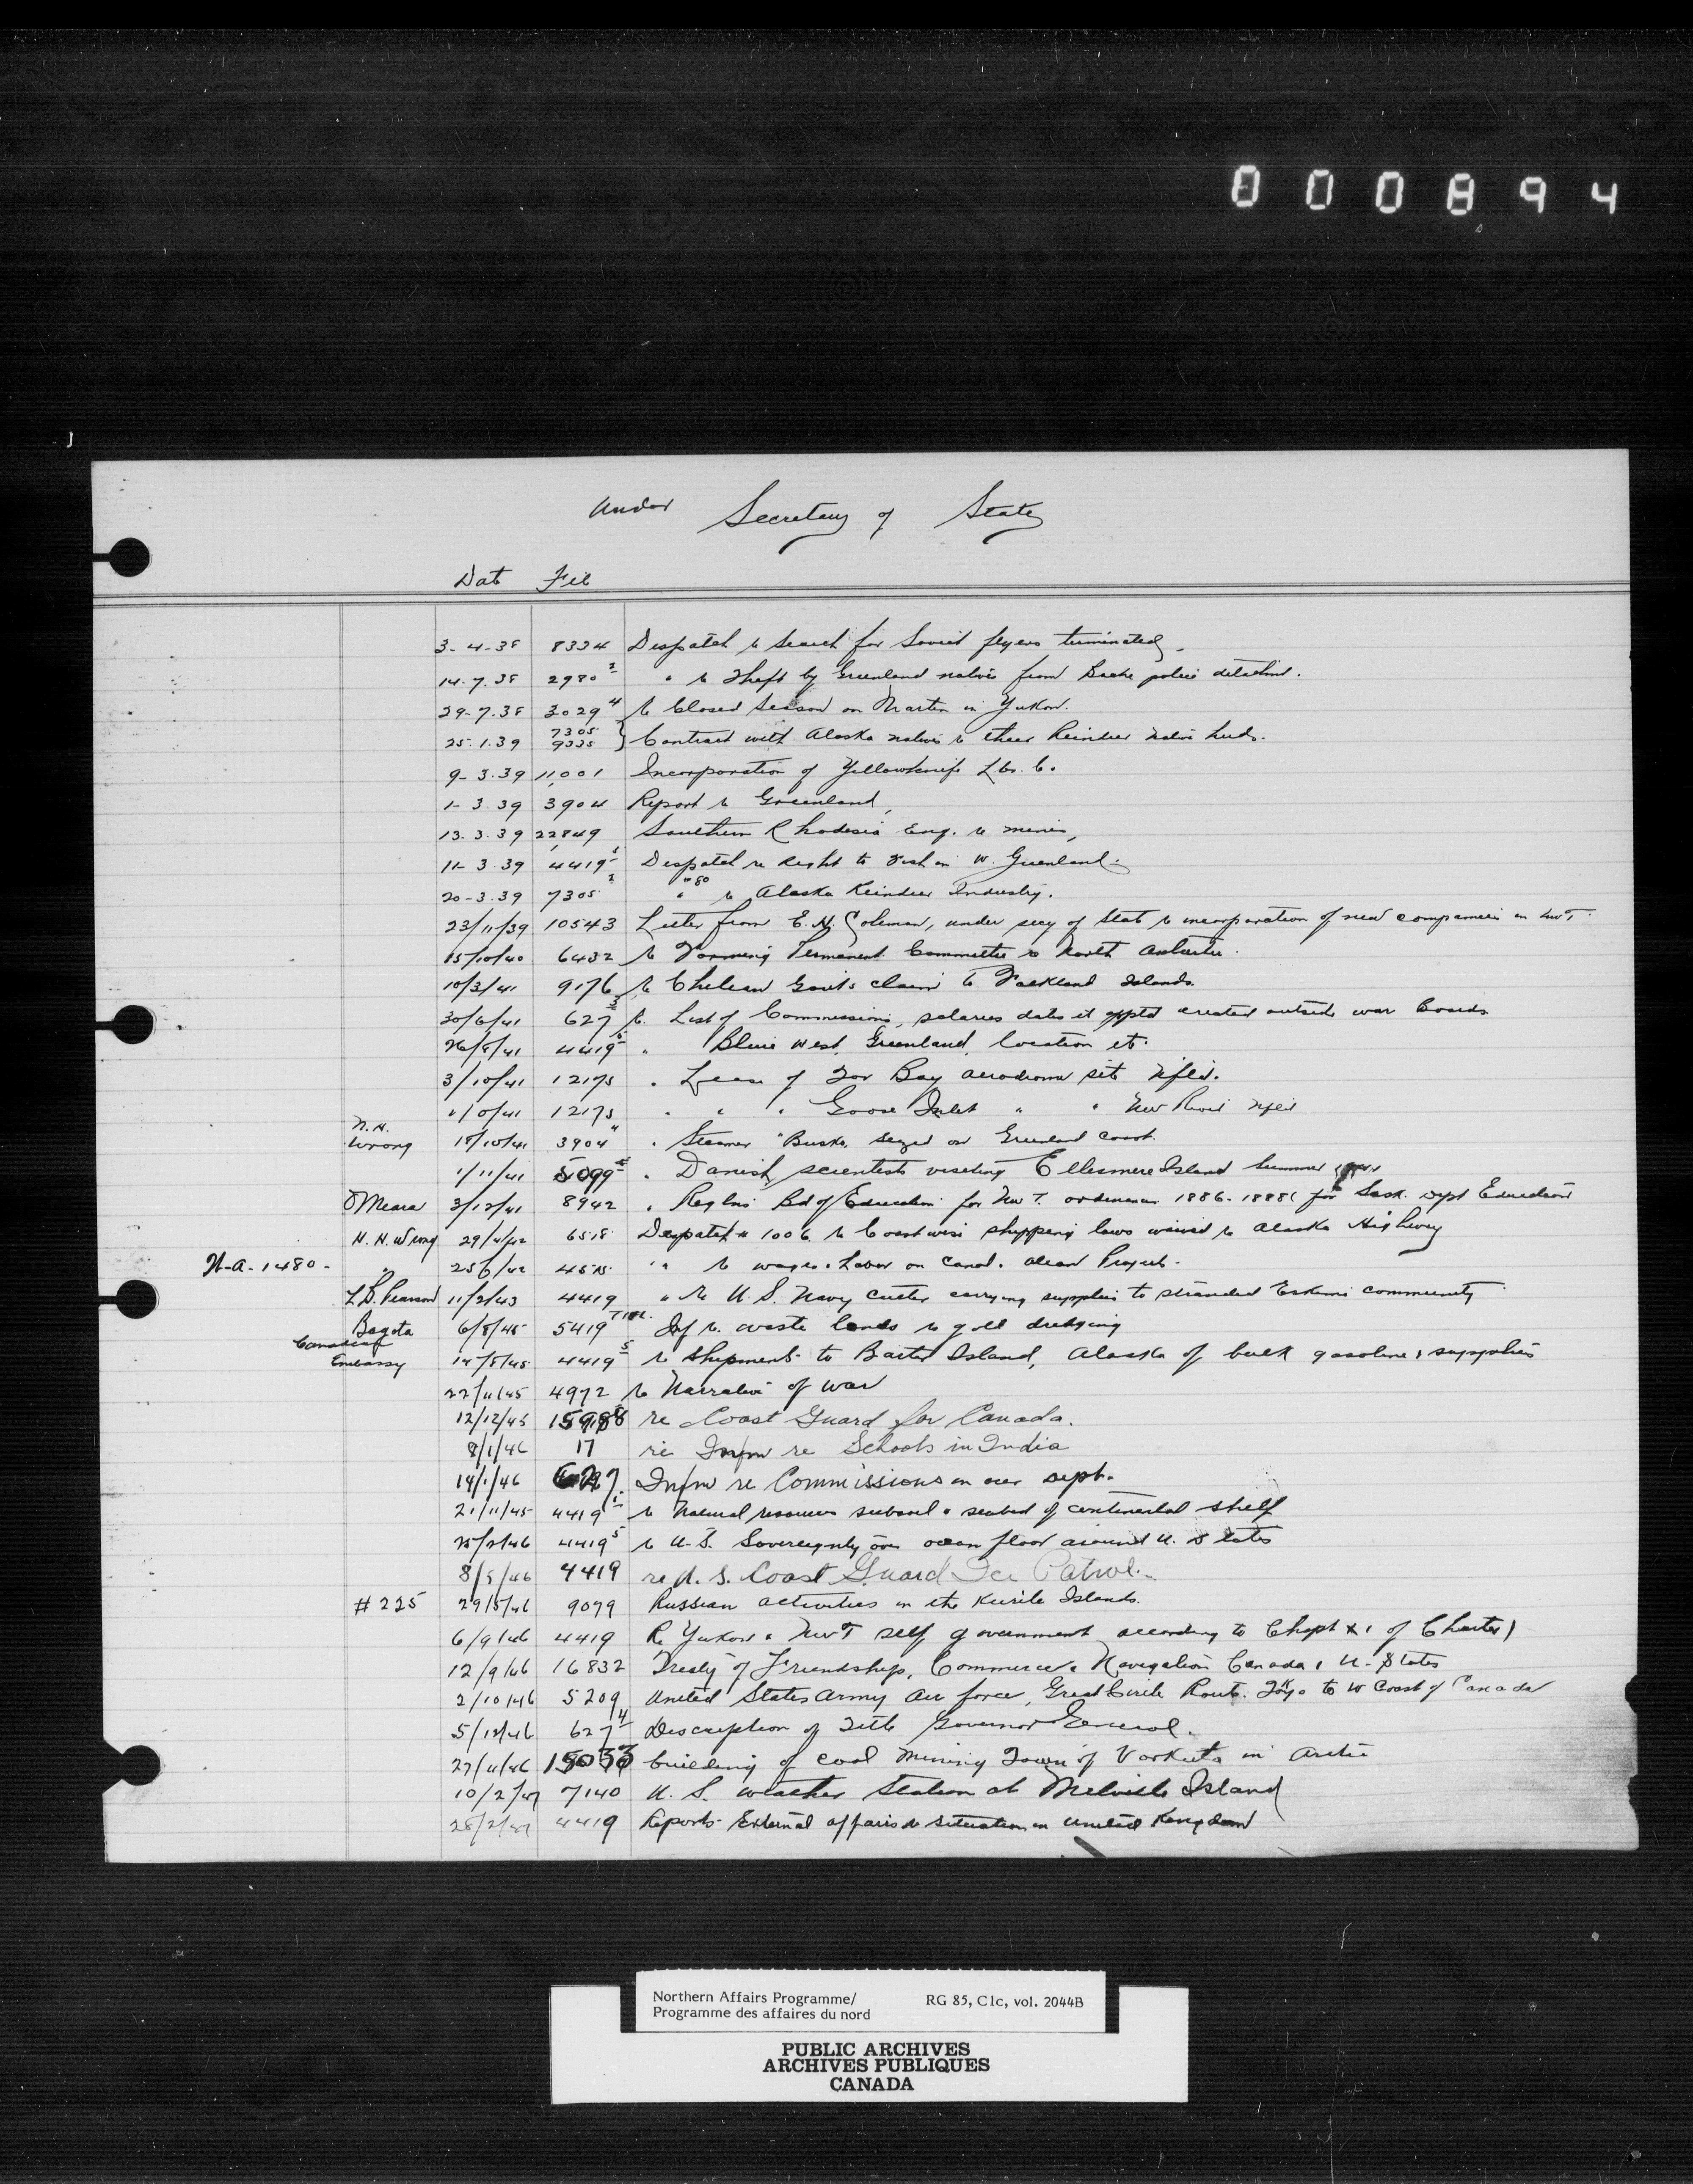 000894
Under Secretary of State
Date File
3-4-38 8334 Despatch re Search for Soviet flyers terminated.
14.7.38 2980 2 " re Theft by Greenland natives from Bache police detachmt.
29-7.38 3029 4 re Closed Season on Marten in Yukon.
25.1.39 7305 9335 } Contract with Alaska natives re their Reindeer herds.
9-3.39 11,001 Incorporation of Yellowknife Co.
1-3 39 3904 Report re Greenland,
13.3.39 22849 Southern Rhodesia Eng. re mines,
11-3 39 4419 Despatch re Right to Fish in W. Greenland-
20-3.39 7305 2 " 80 re Alaska Reindeer Industry.
23/11/39 10543 Letter from E.H. Coleman, under secy of State re incorporation of new companies in NWT.
15/10/40 6432 re Forming Permanent Committee re North
10/3/41 9176 re Chilean Govt's claim to Falkland Islands.
30/6/41 627 3 re. List of Commissions, salaries dates etc apptd created outside war Boards
26/8/41 4419 " Bluie West, Greenland, location etc.
3/10/41 12175 " Lease of Bay aerodrome site Nfld.
12175 " " " Goose Inlet " " Nfld
N.A. Wrong 18/10/41 3904 " " Steamer "Busko" seized on Greenland coast.
1/11/41 5099 " Danish scientists visiting Ellesmere Island Summer
O'Meara 3/12/41 8942 " Regins Bd of Education for NWT. ordinances 1886-1888 ( for Sask. Dept Education
H.H. Wrong 29/4/42 6518 Despatch # 1006 re Coastwise shipping laws waived re Alaska Highway
N-A-1480- " 25/6/42 " re wages & Labor on Canol & Projects.
L.B. Pearson 11/2/43 4419 " re U.S. Navy Cutter carrying supplies to stranded Eskimo community
Bogota
Canadian
Embassy
6/8/45 5419 Inf re. waste lands re gold dredging
14/8/45 4419 5 re Shipment to Barter Island, Alaska of bulk gasoline & supplies
22/11/45 4972 re Narrative of War
12/12/45 15988 re Coast Guard for Canada.
8/1/46 17 re Infm re Schools in India
14/1/46 627. Infm re Commissions in our dept.
21/11/45 4419 re Natural resources subsoil & seabed of continental shelf
25/2/46 4419 5 re U.S. Sovereignty over ocean floor around U. States
8/5/46 4419 re U.S. Coast Guard Ice Patrol.
# 225 29/5/46 9079 Russian activities in the Kurile Islands.
6/9/46 4419 Re Yukon & NWT self government according to Chapt XI of Charter)
12/9/46 16832 Treaty of Friendship, Commerce & Navigation Canada & U-States
2/10/46 5209 United States Army Air force, Great Circle Route. Tokyo to W Coast of Canada
5/12/46 627 4 Description of Title Governor General.
27/11/46 15033 building of coal Mining Town of Vorkuta in Arctic
10/2/47 7140 U.S. Weather Station at Melville Island
28/2/47 4419 Reports- External affairs re situation in United Kingdom
Northern Affairs Programme/
Programme des affaires du nord
RG 85, C1c, vol. 2044B
PUBLIC ARCHIVES
ARCHIVES PUBLIQUES
CANADA